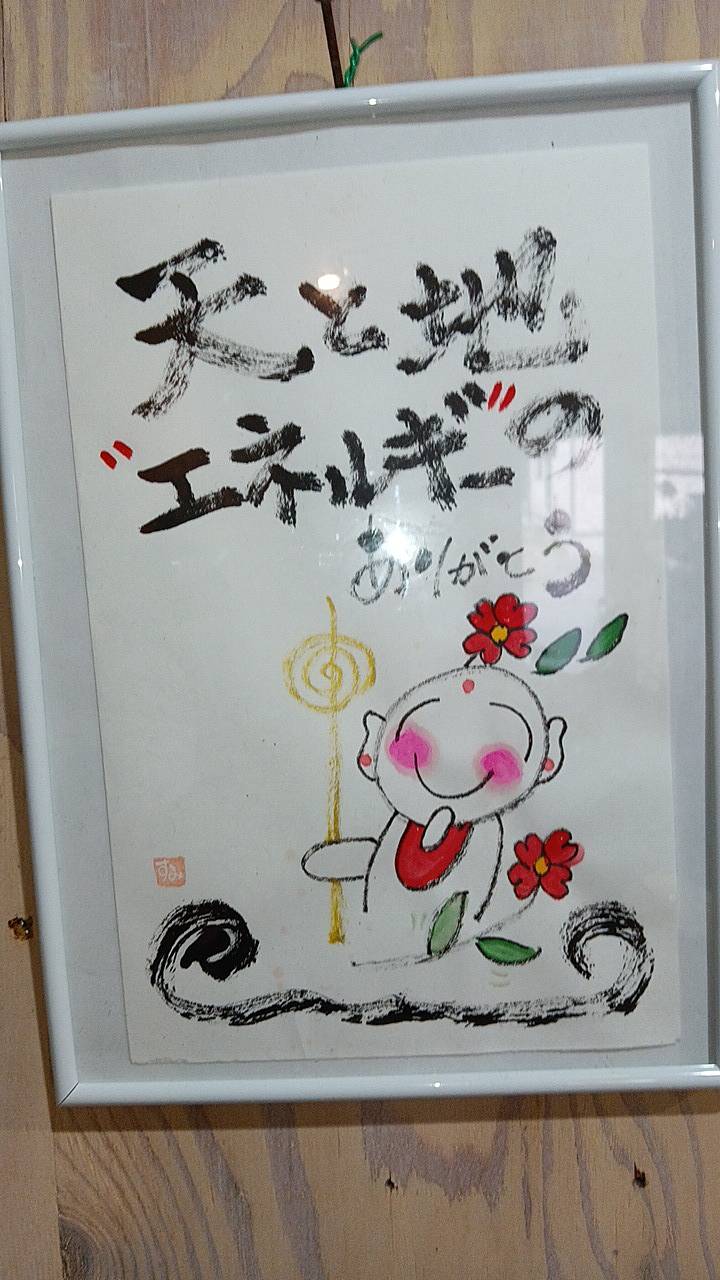 天と地
"エネルギー"の
ありがとう
すみ